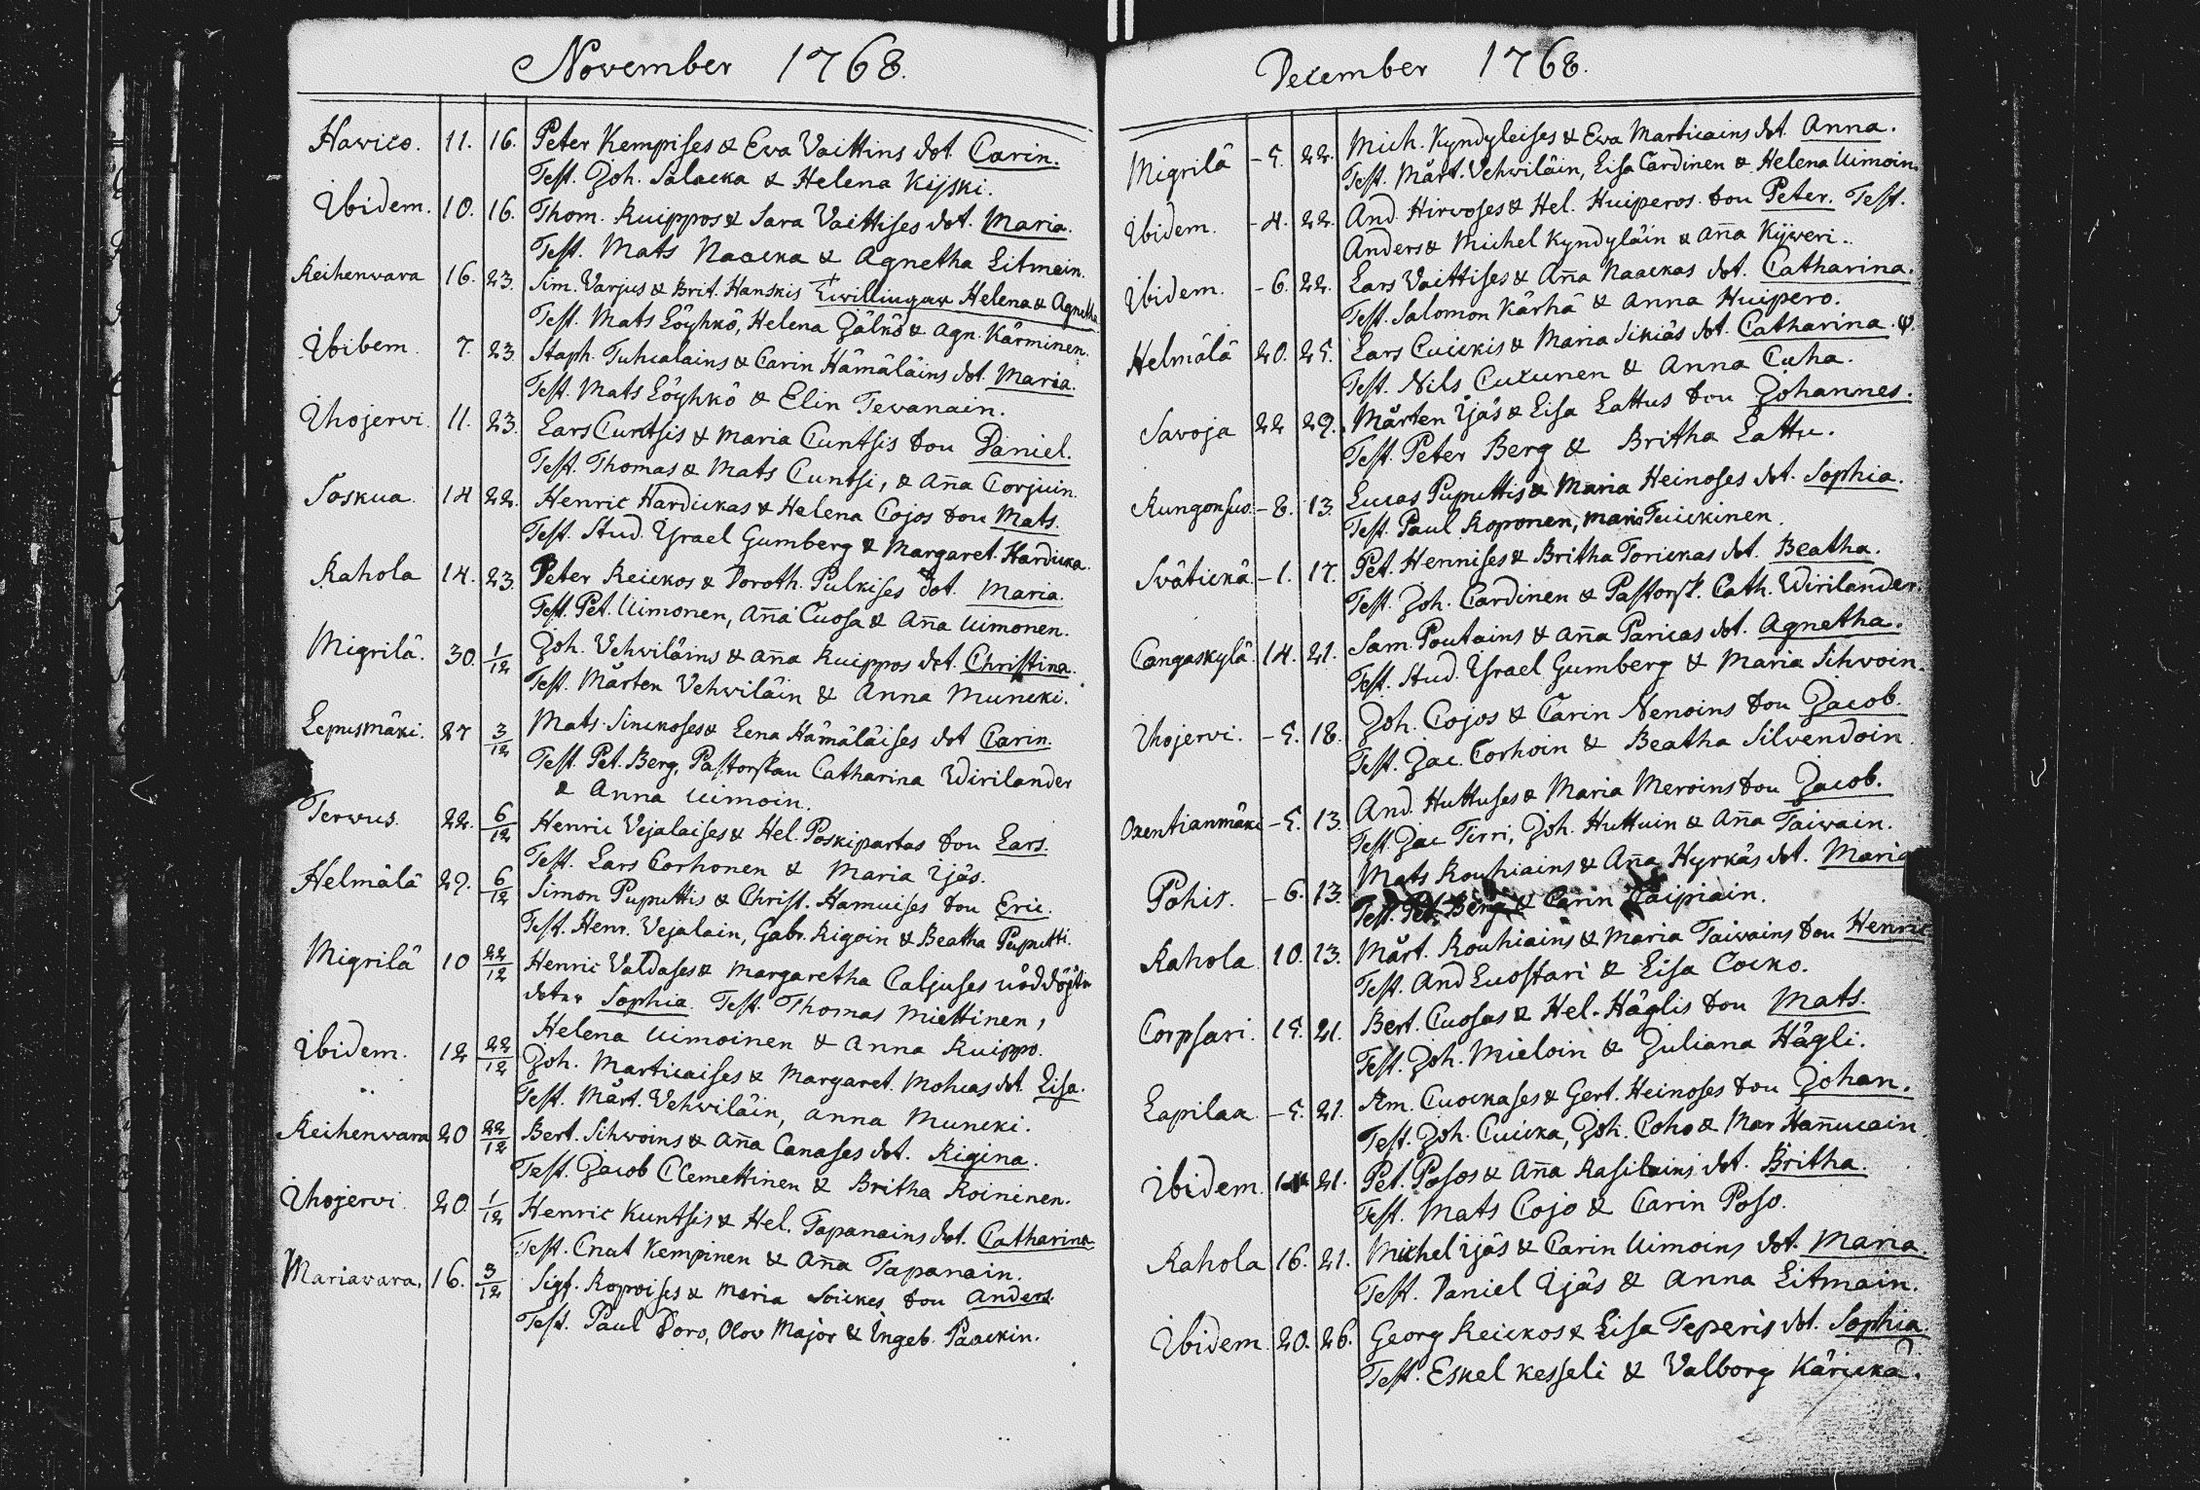 November 1768.
Hawico. 11. 16. Peter Kempises & Eva Vaittins dot. Carin.
Test. Joh. Salacka & Helena Kijski.
Ibidem. 10. 16. Thom. Kuippos & Sara Vaittises dot. Maria.
Test. Mats Naacka & Agnetha Litmain.
Reihenvara 16. 23. Sim. Varjus & Brit. Hanskis Twillingar Helena & Agnetha
Test. Mats Löyhkö, Helena Jälkö & Agn. Kärminen.
Ibibem. 7. 23. Staph. Tuhcalains & Carin Hämäläins dot. Maria.
Test. Mats Löyhkö & Elin Tevanain.
Ihojervi. 11. 23. Lars Cuntsis & Maria Cuntsis son Daniel.
Test. Thomas & Mats Cuntsi, & Aña Corjuin.
Soskua. 14 22. Henric Harduckas & Helena Cojos son Mats.
Test. Stud. Ysrael Gumberg & Margaret. Harducka.
Rahola 14. 23. Peter Reickos & Doroth. Pulkises dot. Maria.
Test. Pet. Uimonen, Aña Cuosa & Aña Uimonen.
Migrilä. 30. 1/12 Joh. Vehviläins & Aña Kuippos dot. Christina.
Test. Mårten Vehviläin & Anna Muncki.
Lepusmäki. 27 3/12 Mats Sinckoses & Lena Hämäläises dot Carin.
Test. Pet. Berg, Pastorskan Catharina Wirilander
& Anna Uimoin.
Terwus. 22. 6/12 Henric Vejalaises & Hel. Poskipartas son Lars.
Test. Lars Corhonen & Maria Ijäs.
Helmälä 29. 6/12 Simon Puputtis & Christ. Hamuises son Eric.
Test. Henr. Vejalain, Gabr. Rigoin & Beatha Puputti.
Migrilä 10 22/12 Henric Valdases & Margaretha Caljuses nöddögta
doter Sophia. Test. Thomas Miettinen,
Helena Uimoinen & Anna Kuippo.
Ibidem. 12 22/12 Joh. Marticaises & Margaret. Mohcas dot Lisa.
Test. Mårt. Vehviläin, Anna Muncki.
Reihenvara 20 22/12 Bert. Sihvoins & Aña Canases dot. Rigina.
Test. Jacob Clemettinen & Britha Roininen.
Ihojervi. 20. 1/12 Henric Kuntsis & Hel. Tapanains dot. Catharina
Test. Cnut Kempinen & Aña Tapanain.
Mariavara. 16. 3/12 Sigf. Ropoises & Maria Soickes son Anders.
Test. Paul Poro, Olov Major & Ingeb. Paackin.
December 1768.
Migrilä - 5. 22. Mich. Kyndyleises & Eva Marticains dot. Anna.
Test. Mårt. Vehviläin, Lisa Cardinen & Helena Uimoin.
Ibidem. - 4. 22. And. Hirvoses & Hel. Huiperos son Peter. Test.
Anders & Michel Kyndyläin & Aña Kijveri.
Ibidem. - 6. 22. Lars Vaittises & Aña Naackas dot. Catharina.
Test. Salomon Kärhä & Anna Huipero.
Helmälä 20. 25. Lars Cuickis & Maria Sikiäs dot. Catharina.
Test. Nils Cucunen & Anna Cuha.
Savoja 22 29. Mårten Ijäs & Lisa Lattus son Johannes.
Test. Peter Berg & Britha Lattu.
Kungonsuo. - 8. 13. Lucas Puputtis & Maria Heinoses dot. Sophia.
Test. Paul Koponen, Maria Tuickinen.
Svätickä - 1. 17. Pet. Hennises & Britha Torickas dot. Beatha.
Test. Joh. Cardinen & Pastorsk. Cath. Wirilander.
Cangaskylä 14. 21. Sam. Poutains & Aña Paricas dot. Agnetha.
Test. Stud. Ysrael Gumberg & Maria Sihvoin.
Ihojervi. - 5. 18. Joh. Cojos & Carin Nenoins son Jacob.
Test. Jac. Corhoin & Beatha Silvendoin
Oxentianmäki - 5. 13. And. Huttuses & Maria Meroins son Jacob.
Test. Jac Tirri, Joh. Huttuin & Aña Taiwain.
Pohis. - 6. 13. Mats Rouhiains & Aña Hyrkäs dot. Maria
Test. Pet. Berg & Carin Taipiain.
Rahola 10. 13. Mårt. Rouhiains & Maria Taiwains son Henric
Test. And Luostari & Lisa Cocko.
Corpsari. 15. 21. Bert. Cuosas & Hel. Häglis son Mats.
Test. Joh. Mieloin & Juliana Hägli.
Lapilaa - 5. 21. Am. Cuockases & Gert. Heinoses son Johan.
Test. Joh. Cuicka, Joh. Coho & Mar Hañucain
Ibidem. 21. Pet. Posos & Aña Rasilains dot. Britha.
Test. Mats Cojo & Carin Poso.
Rahola 16. 21. Michel Ijäs & Carin Uimoins dot. Maria.
Test. Daniel Ijäs & Anna Litmain.
Ibidem 20. 26. Georg Reickos & Lisa Teperis dot. Sophia.
Test. Eskel Kesseli & Valborg Käricka.